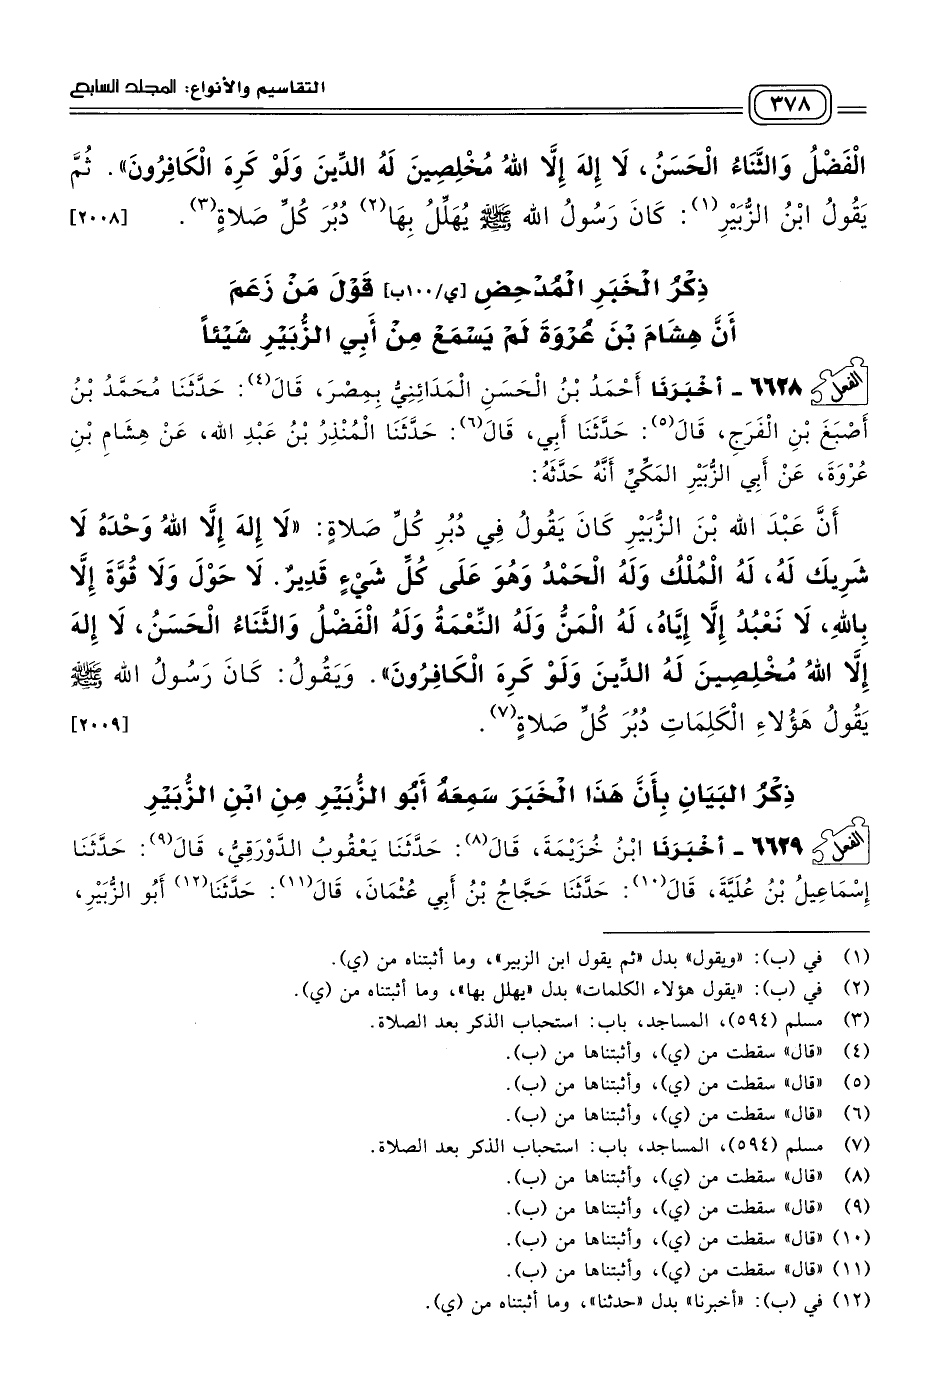 التقاسيم والأنواع: المجلد السابع
٣٧٨
الْفَضْلُ وَالثَّنَاءُ الْحَسَنُ، لَا إِلهَ إِلَّا اللهُ مُخْلِصِينَ لَهُ الدِّينَ وَلَوْ كَرِهَ الْكَافِرُونَ». ثُمَّ
يَقُولُ ابْنُ الزُّبَيْرِ(١): كَانَ رَسُولُ الله ﷺ يُهَلِّلُ بِهَا(٢) دُبُرَ كُلِّ صَلَاةٍ(٣). [٢٠٠٨]
ذِكْرُ الْخَبَرِ الْمُدْحِضِ [ي/١٠٠ب] قَوْلَ مَنْ زَعَمَ
أَنَّ هِشَامَ بْنَ عُرْوَةَ لَمْ يَسْمَعْ مِنْ أَبِي الزُّبَيْرِ شَيْئاً
الفعل ٦٦٢٨ - أَخْبَرَنَا أَحْمَدُ بْنُ الْحَسَنِ الْمَدَائِنِيُّ بِمِصْرَ، قَالَ(٤): حَدَّثَنَا مُحَمَّدُ بْنُ
أَصْبَغَ بْنِ الْفَرَجِ، قَالَ(٥): حَدَّثَنَا أَبِي، قَالَ(٦): حَدَّثَنَا الْمُنْذِرُ بْنُ عَبْدِ الله، عَنْ هِشَامِ بْنِ
عُرْوَةَ، عَنْ أَبِي الزُّبَيْرِ المَكِّيِّ أَنَّهُ حَدَّثَهُ:
أَنَّ عَبْدَ الله بْنَ الزُّبَيْرِ كَانَ يَقُولُ فِي دُبُرِ كُلِّ صَلَاةٍ: «لَا إِلهَ إِلَّا اللهُ وَحْدَهُ لَا
شَرِيكَ لَهُ، لَهُ الْمُلْكُ وَلَهُ الْحَمْدُ وَهُوَ عَلَى كُلِّ شَيْءٍ قَدِيرٌ. لَا حَوْلَ وَلَا قُوَّةَ إِلَّا
بِاللهِ، لَا نَعْبُدُ إِلَّا إِيَّاهُ، لَهُ الْمَنُّ وَلَهُ النِّعْمَةُ وَلَهُ الْفَضْلُ وَالثَّنَاءُ الْحَسَنُ، لَا إِلهَ
إِلَّا اللهُ مُخْلِصِينَ لَهُ الدِّينَ وَلَوْ كَرِهَ الْكَافِرُونَ». وَيَقُولُ: كَانَ رَسُولُ الله ﷺ
يَقُولُ هَؤُلَاءِ الْكَلِمَاتِ دُبُرَ كُلِّ صَلَاةٍ(٧). [٢٠٠٩]
ذِكْرُ البَيَانِ بِأَنَّ هَذَا الْخَبَرَ سَمِعَهُ أَبُو الزُّبَيْرِ مِنِ ابْنِ الزُّبَيْرِ
الفعل ٦٦٢٩ - أَخْبَرَنَا ابْنُ خُزَيْمَةَ، قَالَ(٨): حَدَّثَنَا يَعْقُوبُ الدَّوْرَقِيُّ، قَالَ(٩): حَدَّثَنَا
إِسْمَاعِيلُ بْنُ عُلَيَّةَ، قَالَ(١٠): حَدَّثَنَا حَجَّاجُ بْنُ أَبِي عُثْمَانَ، قَالَ(١١): حَدَّثَنَا(١٢) أَبُو الزُّبَيْرِ،
(١) في (ب): «ويقول» بدل «ثم يقول ابن الزبير»، وما أثبتناه من (ي).
(٢) في (ب): «يقول هؤلاء الكلمات» بدل «يهلل بها»، وما أثبتناه من (ي).
(٣) مسلم (٥٩٤)، المساجد، باب: استحباب الذكر بعد الصلاة.
(٤) «قال» سقطت من (ي)، وأثبتناها من (ب).
(٥) «قال» سقطت من (ي)، وأثبتناها من (ب).
(٦) «قال» سقطت من (ي)، وأثبتناها من (ب).
(٧) مسلم (٥٩٤)، المساجد، باب: استحباب الذكر بعد الصلاة.
(٨) «قال» سقطت من (ي)، وأثبتناها من (ب).
(٩) «قال» سقطت من (ي)، وأثبتناها من (ب).
(١٠) «قال» سقطت من (ي)، وأثبتناها من (ب).
(١١) «قال» سقطت من (ي)، وأثبتناها من (ب).
(١٢) في (ب): «أخبرنا» بدل «حدثنا»، وما أثبتناه من (ي).